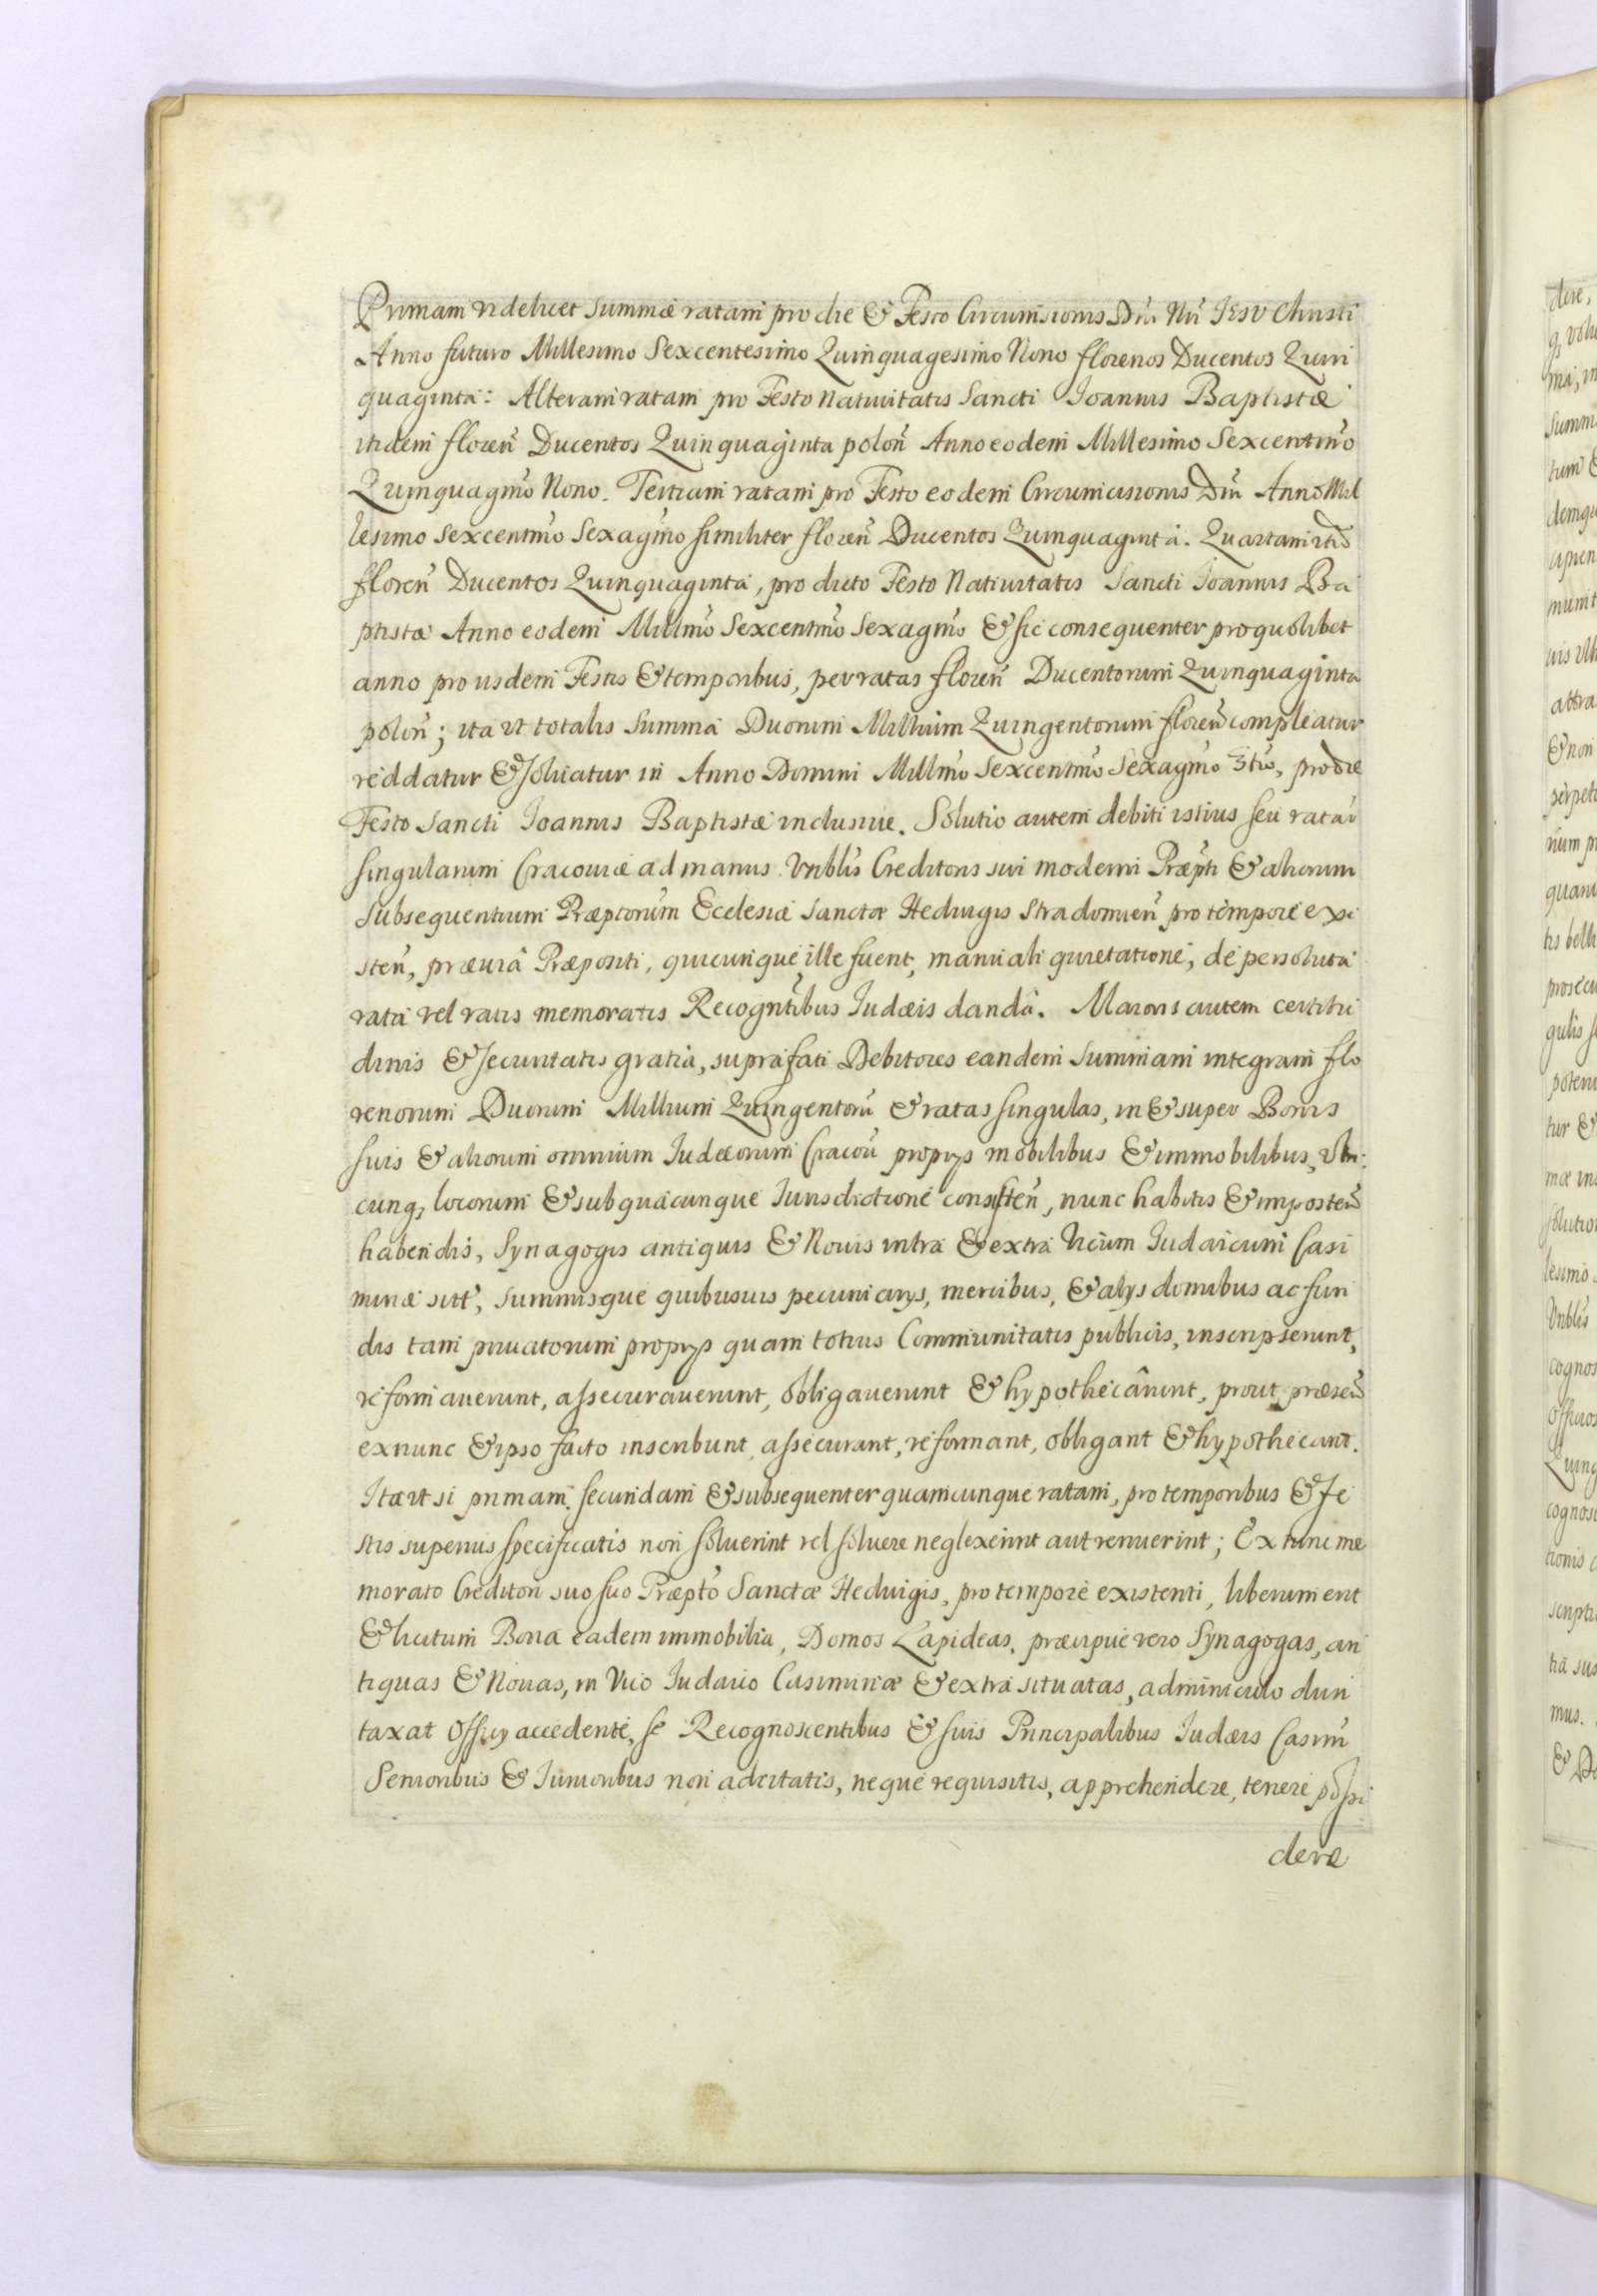 Primam videlicet summæ ratam pro die & Festo Circumcisionis Dni Nri Jesv Christi
Anno futuro Millesimo Sexcentesimo Quinquagesimo Nono florenos Ducentos Quin
quaginta: Alteram ratam pro Festo Nativitatis Sancti Joannis Baptistæ
itidem floreñ Ducentos Quinquaginta poloñ Anno eodem Millesimo Sexcentmo
Quinquagmo Nono. Tertiam ratam pro Festo eodem Circumcisionis Dni Anno Mil
lesimo Sexcentmo Sexagmo similiter floreñ Ducentos Quinquaginta. Quartam itid
floreñ Ducentos Quinquaginta, pro dicto Festo Nativitatis Sancti Joannis Ba
ptistæ Anno eodem Millmo Sexcentmo Sexagmo & sic consequenter pro quolibet
anno pro iisdem Festis & temporibus, per ratas floreñ Ducentorum Quinquaginta
poloñ; ita vt totalis summa Duorum Millium Quingentorum floreñ compleatur
reddatur & soluatur in Anno Domini Millmo Sexcentmo Sexagmo 3tio, pro die
Festo Sancti Joannis Baptistæ inclusiue. Solutio autem debiti istius seu ratar
singularum Cracouiæ ad manus Vnblis Creditoris sui moderni Præpti & aliorum
subsequentium Præptorum Ecclesiæ Sanctæ Heduigis Stradomień pro tempore exi
steñ, præuiâ Præpositi, quicunque ille fuerit, manuali quietatione, de persoluta
rata vel ratis memoratis Recogntibus Judæis dandâ. Maioris autem certitu
dinis & securitatis gratia, suprafati Debitores eandem summam integram flo
renorum Duorum Millium Quingentorũ & ratas singulas, in & super Bonis
suis & aliorum omnium Judæorum Cracoũ proprijs mobilibus & immobilibus, vbi
cunq, locorum & sub quacunque Jurisdictione consisteñ, nunc habitis & imposteñ
habendis, Synagogis antiquis & Nouis intra & extra Vicum Judaicum Casi
miriæ sitt, summisque quibusuis pecuniarijs, mercibus, & alijs domibus ac fun
dis tam priuatorum proprijs quam totius Communitatis publicis, inscripserunt,
reformauerunt, assecurauerunt, obligauerunt & hypothecârunt, prout præseñ
ex nunc & ipso facto inscribunt, assecurant, reformant, obligant & hypothecant.
Ita vt si primam, secundam & subsequenter quamcunque ratam, pro temporibus & Fe
stis superius specificatis non soluerint vel soluere neglexerint aut renuerint; Ex tunc me
morato Creditori suo suo Præpto Sanctæ Heduigis, pro tempore existenti, liberum erit
& licitum Bona eadem immobilia, Domos Lapideas, præcipue vero Synagogas, an
tiquas & Nouas, in Vico Judaico Casimiriæ & extra situatas, adminiculo dun
taxat Officij accedente, se Recognoscentibus & suis Principalibus Judæis Casim
Senioribus & Junioribus non adcitatis, neque requisitis, apprehendere, tenere possi
dere